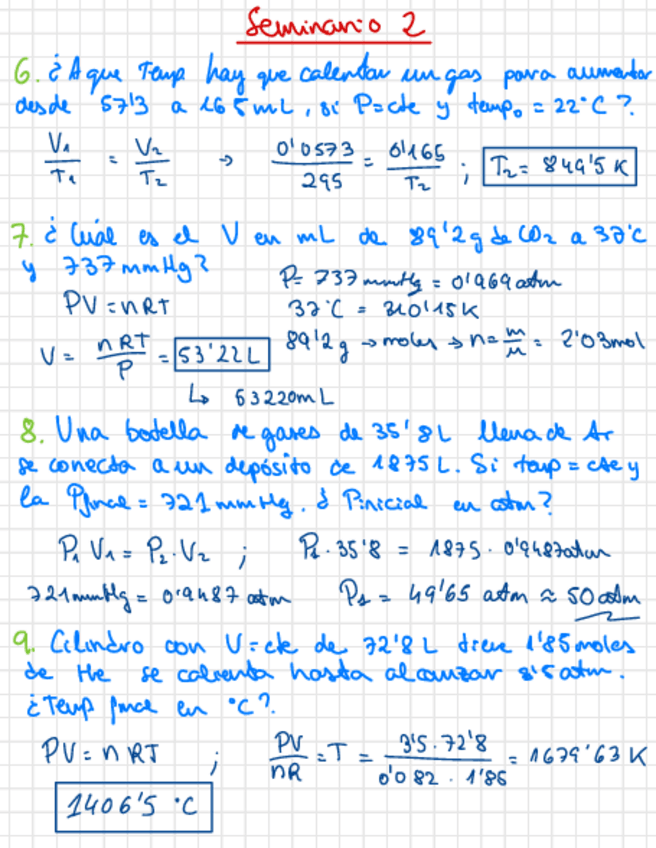 Seminario 2
6. ¿A que Temp hay que calentar un gas para aumentar
desde 57'3 a 165 mL, si P=cte y temp₀ = 22°C?
V₁/T₁ = V₂/T₂ → 0'0573/295 = 0'165/T₂ ; T₂ = 849'5 K
7. ¿Cuál es el V en mL de 89'2g de CO₂ a 37°C
y 737 mmHg?
P= 737 mmHg = 0'969 atm
PV = nRT
37°C = 310'15K
V = nRT/P = 53'22 L
89'2g → moles → n = m/M = 2'03mol
↳ 53220mL
8. Una botella de gases de 35'8L llena de Ar
se conecta a un depósito de 1875 L. Si temp = cte y
la Pfinal = 721 mmHg. ¿ Pinicial en atm?
P₁ V₁ = P₂. V₂ ; P₁. 35'8 = 1875 . 0'9487atm
721mmHg = 0'9487 atm P₁ = 49'65 atm ≈ 50 atm
9. Cilindro con V=cte de 72'8 L tiene 1'85 moles
de He se calienta hasta alcanzar 3'5 atm.
¿Temp final en °C?
PV = n RT ; PV/nR = T = 3'5 . 72'8/0'082 . 1'85 = 1679'63 K
1406'5 °C